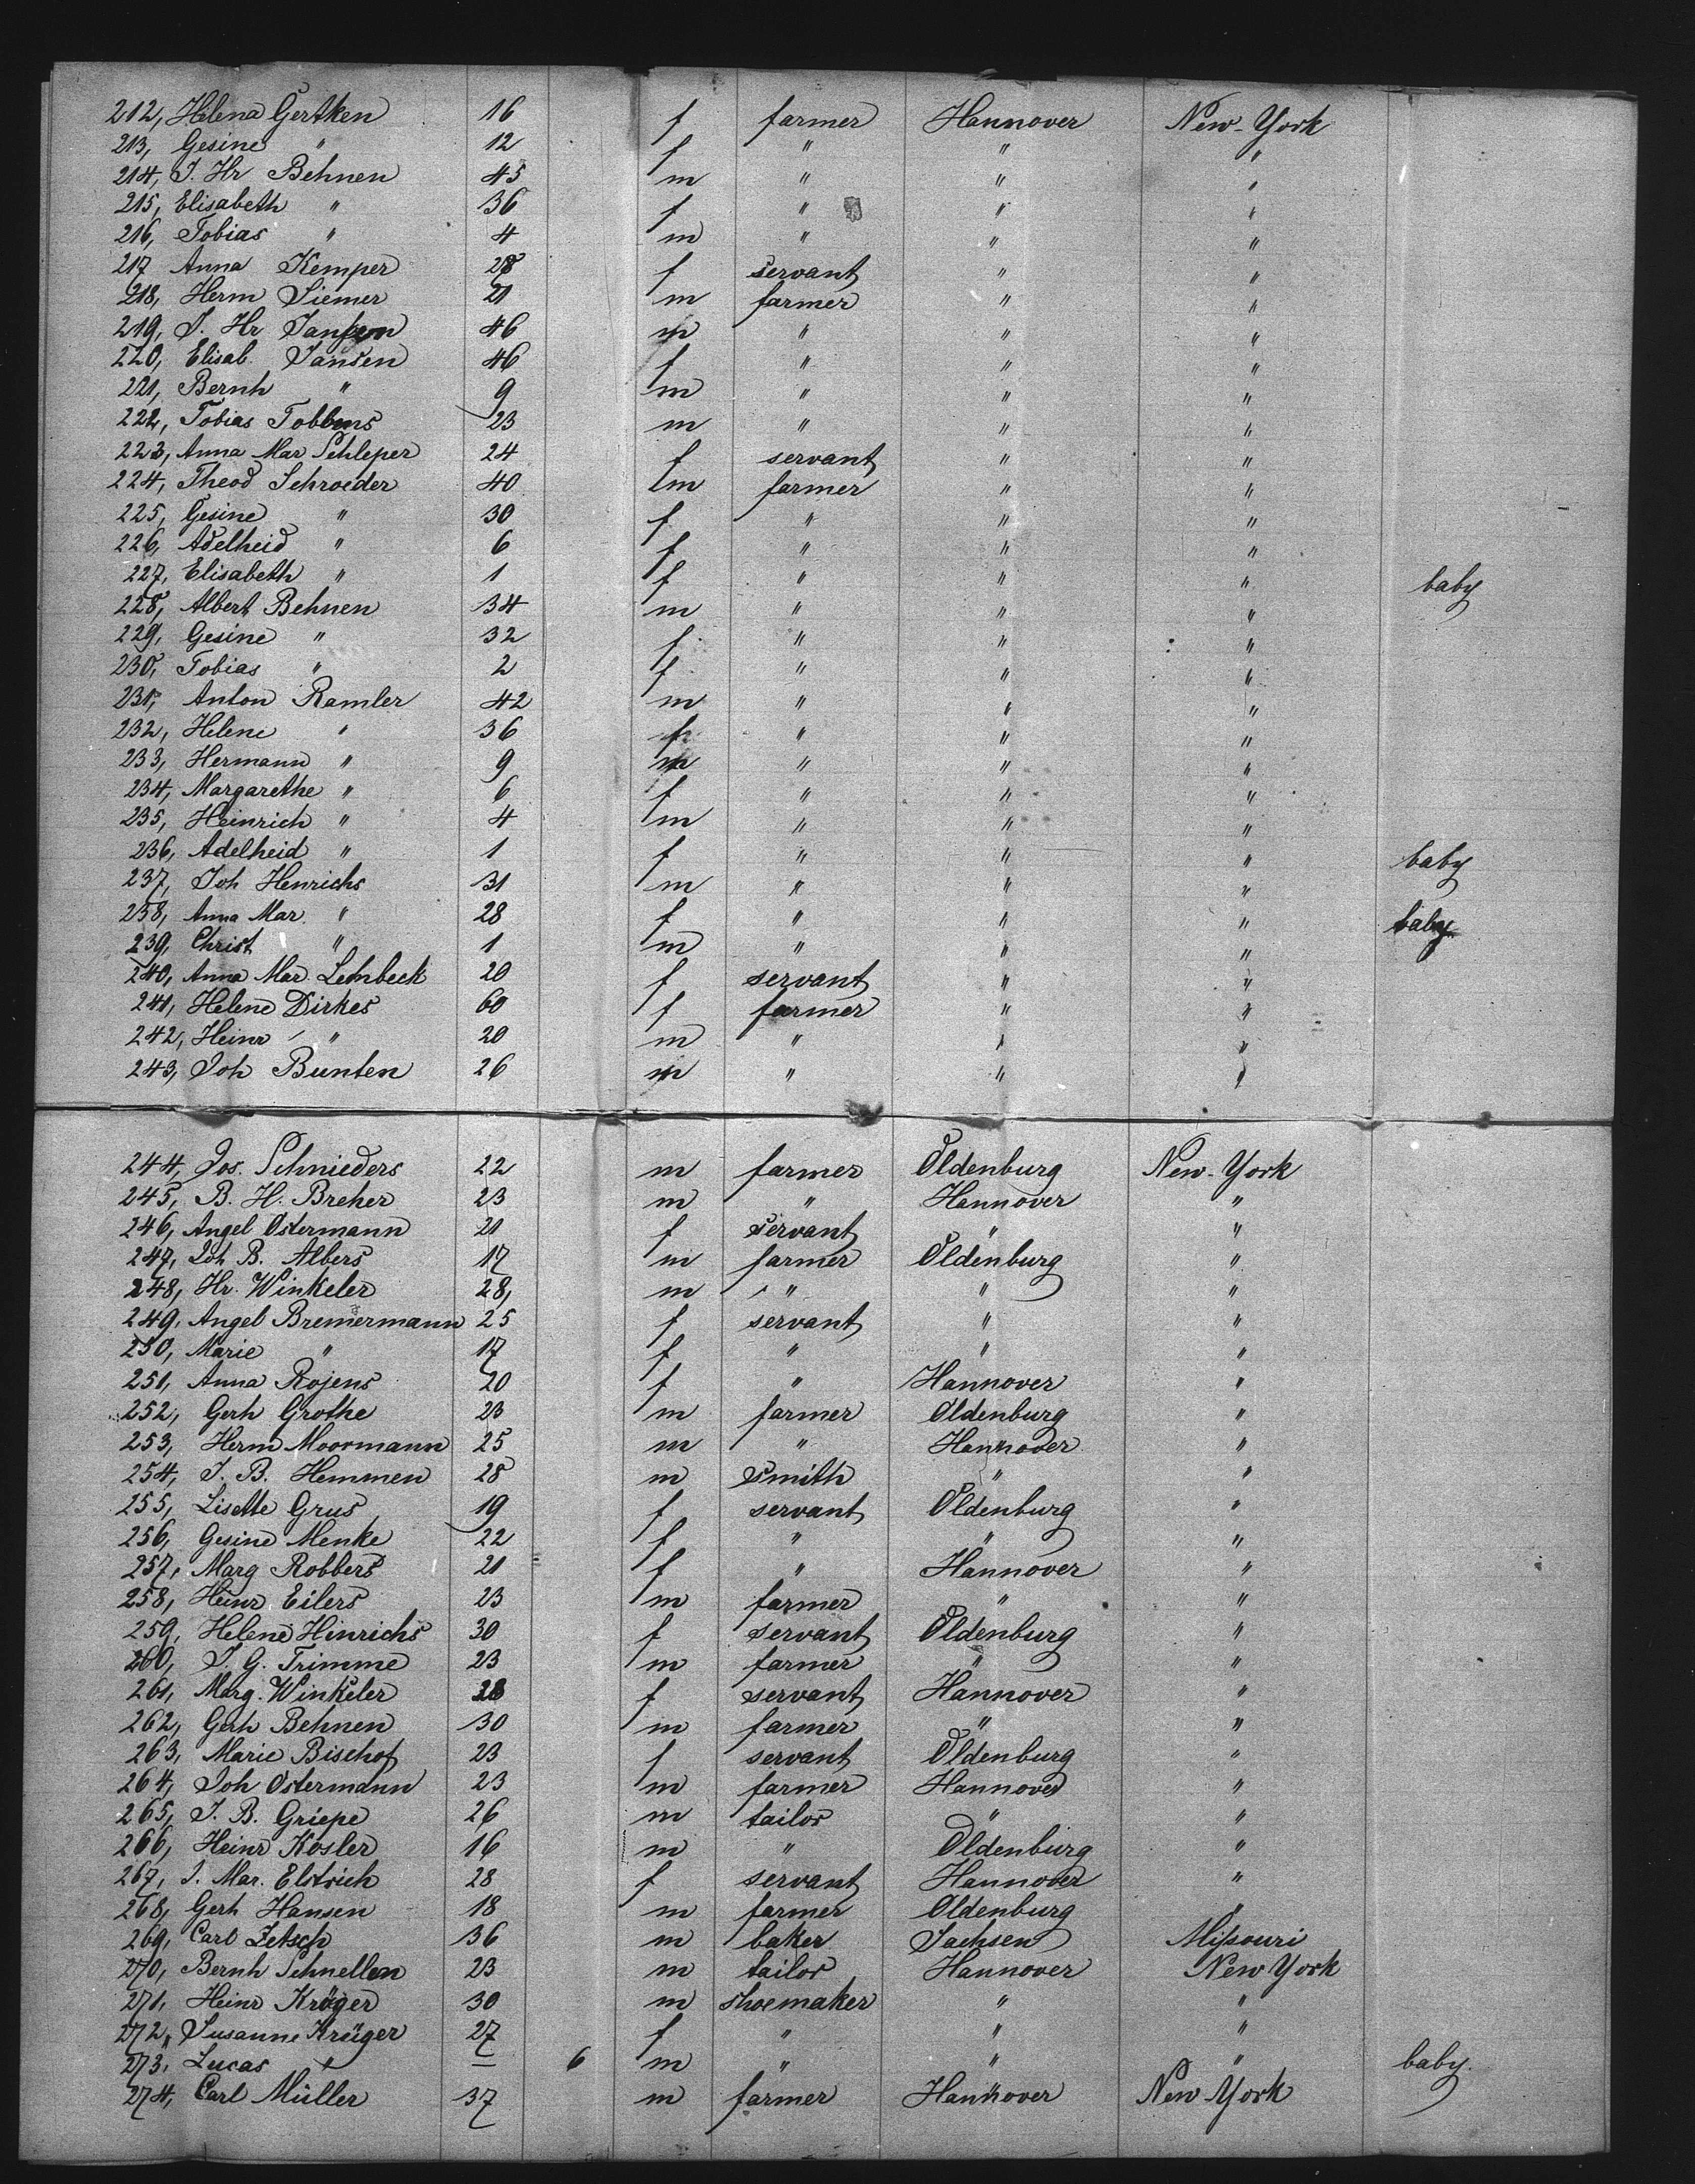 212, Helena Gertken 16 f farmer Hannover New-York
213, Gesine " 12 f " " "
214, J. Hr Behnen 45 m " " "
215, Elisabeth " 36 f " " "
216, Tobias " 4 m " " "
217 Anna Kemper 28 f servant " "
218, Herm Siemer 21 m farmer " "
219, J. Hr Jansen 46 m " " "
220, Elisab. Jansen 46 f " " "
221, Bernh " 9 m " " "
222, Tobias Tobbens 23 m " " "
223, Anna Mar Schleper 24 f servant " "
224, Theod Schroeder 40 m farmer " "
225, Gesine " 30 f " " "
226, Adelheid " 6 f " " "
227, Elisabeth " 1 f " " " baby
228, Albert Behnen 34 m " " "
229, Gesine " 32 f " " "
230, Tobias " 2 f " " "
231, Anton Ramler 42 m " " "
232, Helene " 36 f " " "
233, Hermann " 9 m " " "
234, Margarethe " 6 f " " "
235, Heinrich " 4 m " " "
236, Adelheid " 1 f " " " baby
237, Joh Henrichs 31 m " " "
238, Anna Mar. " 28 f " " " baby
239, Christ " 1 m " " "
240, Anna Mar Lembeck 20 f servant " "
241, Helene Dirkes 60 f farmer " "
242, Heinr " 20 m " " "
243, Joh Bunten 26 m " " "
244, Jos. Schnieders 22 m farmer Oldenburg New-York
245, B. H. Breher 23 m " Hannover "
246, Angel Ostermann 21 f servant " "
247, Joh B. Albers 17 m farmer Oldenburg "
248, Hr. Winkeler 28, m " " "
249, Angel Bremermann 25 f servant " "
250, Marie " 17 f " " "
251, Anna Rojens 20 f " Hannover "
252, Gerh Grothe 23 m farmer Oldenburg "
253, Herm Moormann 25 m " Hannover "
254, J. B. Hemmen 28 m smith " "
255, Lisette Grus 19 f servant Oldenburg "
256, Gesine Menke 22 f " " "
257, Marg Robbers 21 f " Hannover "
258, Heinr Eilers 23 m farmer " "
259, Helene Hinrichs 30 f servant Oldenburg "
260, J. G. Trimme 23 m farmer " "
261, Marg. Winkeler 28 f servant Hannover "
262, Gerh Behnen 30 m farmer " "
263, Marie Bischof 23 f servant Oldenburg "
264, Joh Ostermann 23 m farmer Hannover "
265, J. B. Griepe 26 m tailor " "
266, Heinr Kosler 16 m " Oldenburg "
267, J. Mar. Elstrich 28 f servant Hannover "
268, Gerh Hansen 18 m farmer Oldenburg "
269, Carl Zetsch 36 m baker Sachsen Missouri
270, Bernh Schnellen 23 m tailor Hannover New York
271, Heinr Krüger 30 m shoemaker " "
272, Susanne Krüger 27 f " " "
273, Lucas " — 6 m " " " baby.
274, Carl Müller 37 m farmer Hannover New York